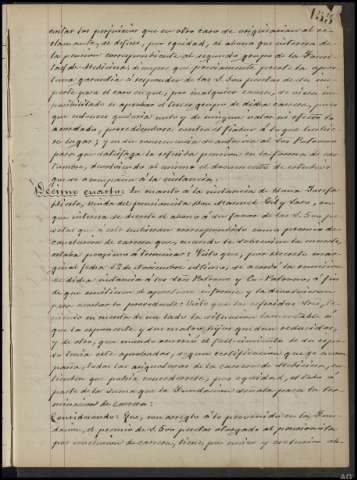 evitar los perjuicios que en otro caso se originarian al re-
clamante, se defiere, por equidad, al abono que interesa de
la pension correspondiente al segundo grupo de la Facul-
tad de Medicina; siempre que previamente preste la opor-
tuna garantia á responder de las
porte para el caso en que, por cualquier causa, se viera im-
posibilitado de aprobar el tercer grupo de dicha carrera, pues
que entonces quedaria nulo y de ningun valor ni efecto lo
acordado, procediéndose contra el fiador á lo que hubiere
lugar; y en su consecuencia se autoriza al Sor Patrono
para que satisfaga la referida pension en la forma de cos-
tumbre, devolviendo al mismo el documento de estudios
que se acompaña á la instancia.
Décimo cuarto: En cuanto á la instancia de
viuda del pensionista Don Manuel Gil y
que interesa se decrete el abono á su favor de las
setas que á este hubieran correspondido como premio de
conclusion de carrera que, cuando le sobrevino la muerte,
estaba próximo á terminar: Visto que, por decreto mar-
ginal fecha 12 de Noviembre último, se acordó la remision
de dicha instancia á los Sres Patrono y Co-Patrono, á fin
de que emitieran el oportuno informe, y la devolvieran
para acordar lo procedente: Visto que los referidos Sres,
niendo en cuenta de un lado la situacion lamentable á
que la exponente y sus cuatro hijos quedan reducidos,
y de otro, que cuando ocurrió el fallecimiento de su espo-
so tenia este aprobadas, segun certificacion que se acom-
paña, todas las asignaturas de la carrera de Medicina, en-
tienden que podia concedérsele, por equidad, el todo ó
parte de la suma que la Fundacion señala para la ter-
minacion de carrera:
Considerando: Que, con arreglo á lo prevenido en la Fun-
dacion, el premio de
por conclusion de carrera, tiene por único y exclusivo ob-